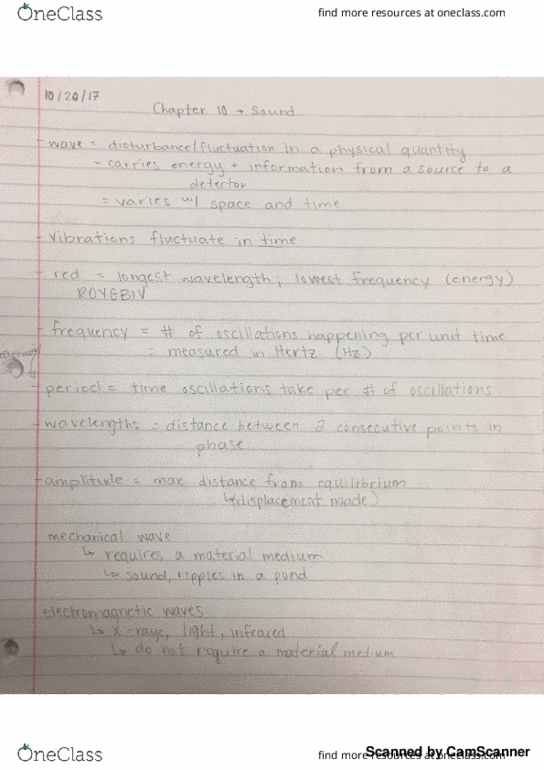 OneClass
find more resources at oneclass.com
10/20/17
Chapter 10 → Sound
- wave = disturbance/fluctuation in a physical quantity
= carries energy + information from a source to a
detector
= varies w/ space and time
- vibrations fluctuate in time
- red = longest wavelength, lowest frequency (energy)
ROYGBIV
- frequency = # of oscillations happening per unit time
= measured in Hertz (Hz)
- period = time oscillations take per # of oscillations.
- wavelengths = distance between 2 consecutive points in
phase
- amplitude = max distance from equilibrium
↳ (displacement made)
mechanical wave
↳ requires a material medium
↳ sound, ripples in a pond
electromagnetic waves
↳ x-rays, light, infrared
↳ do not require a material medium
OneClass
find more resources at oneclass.com
Scanned by CamScanner